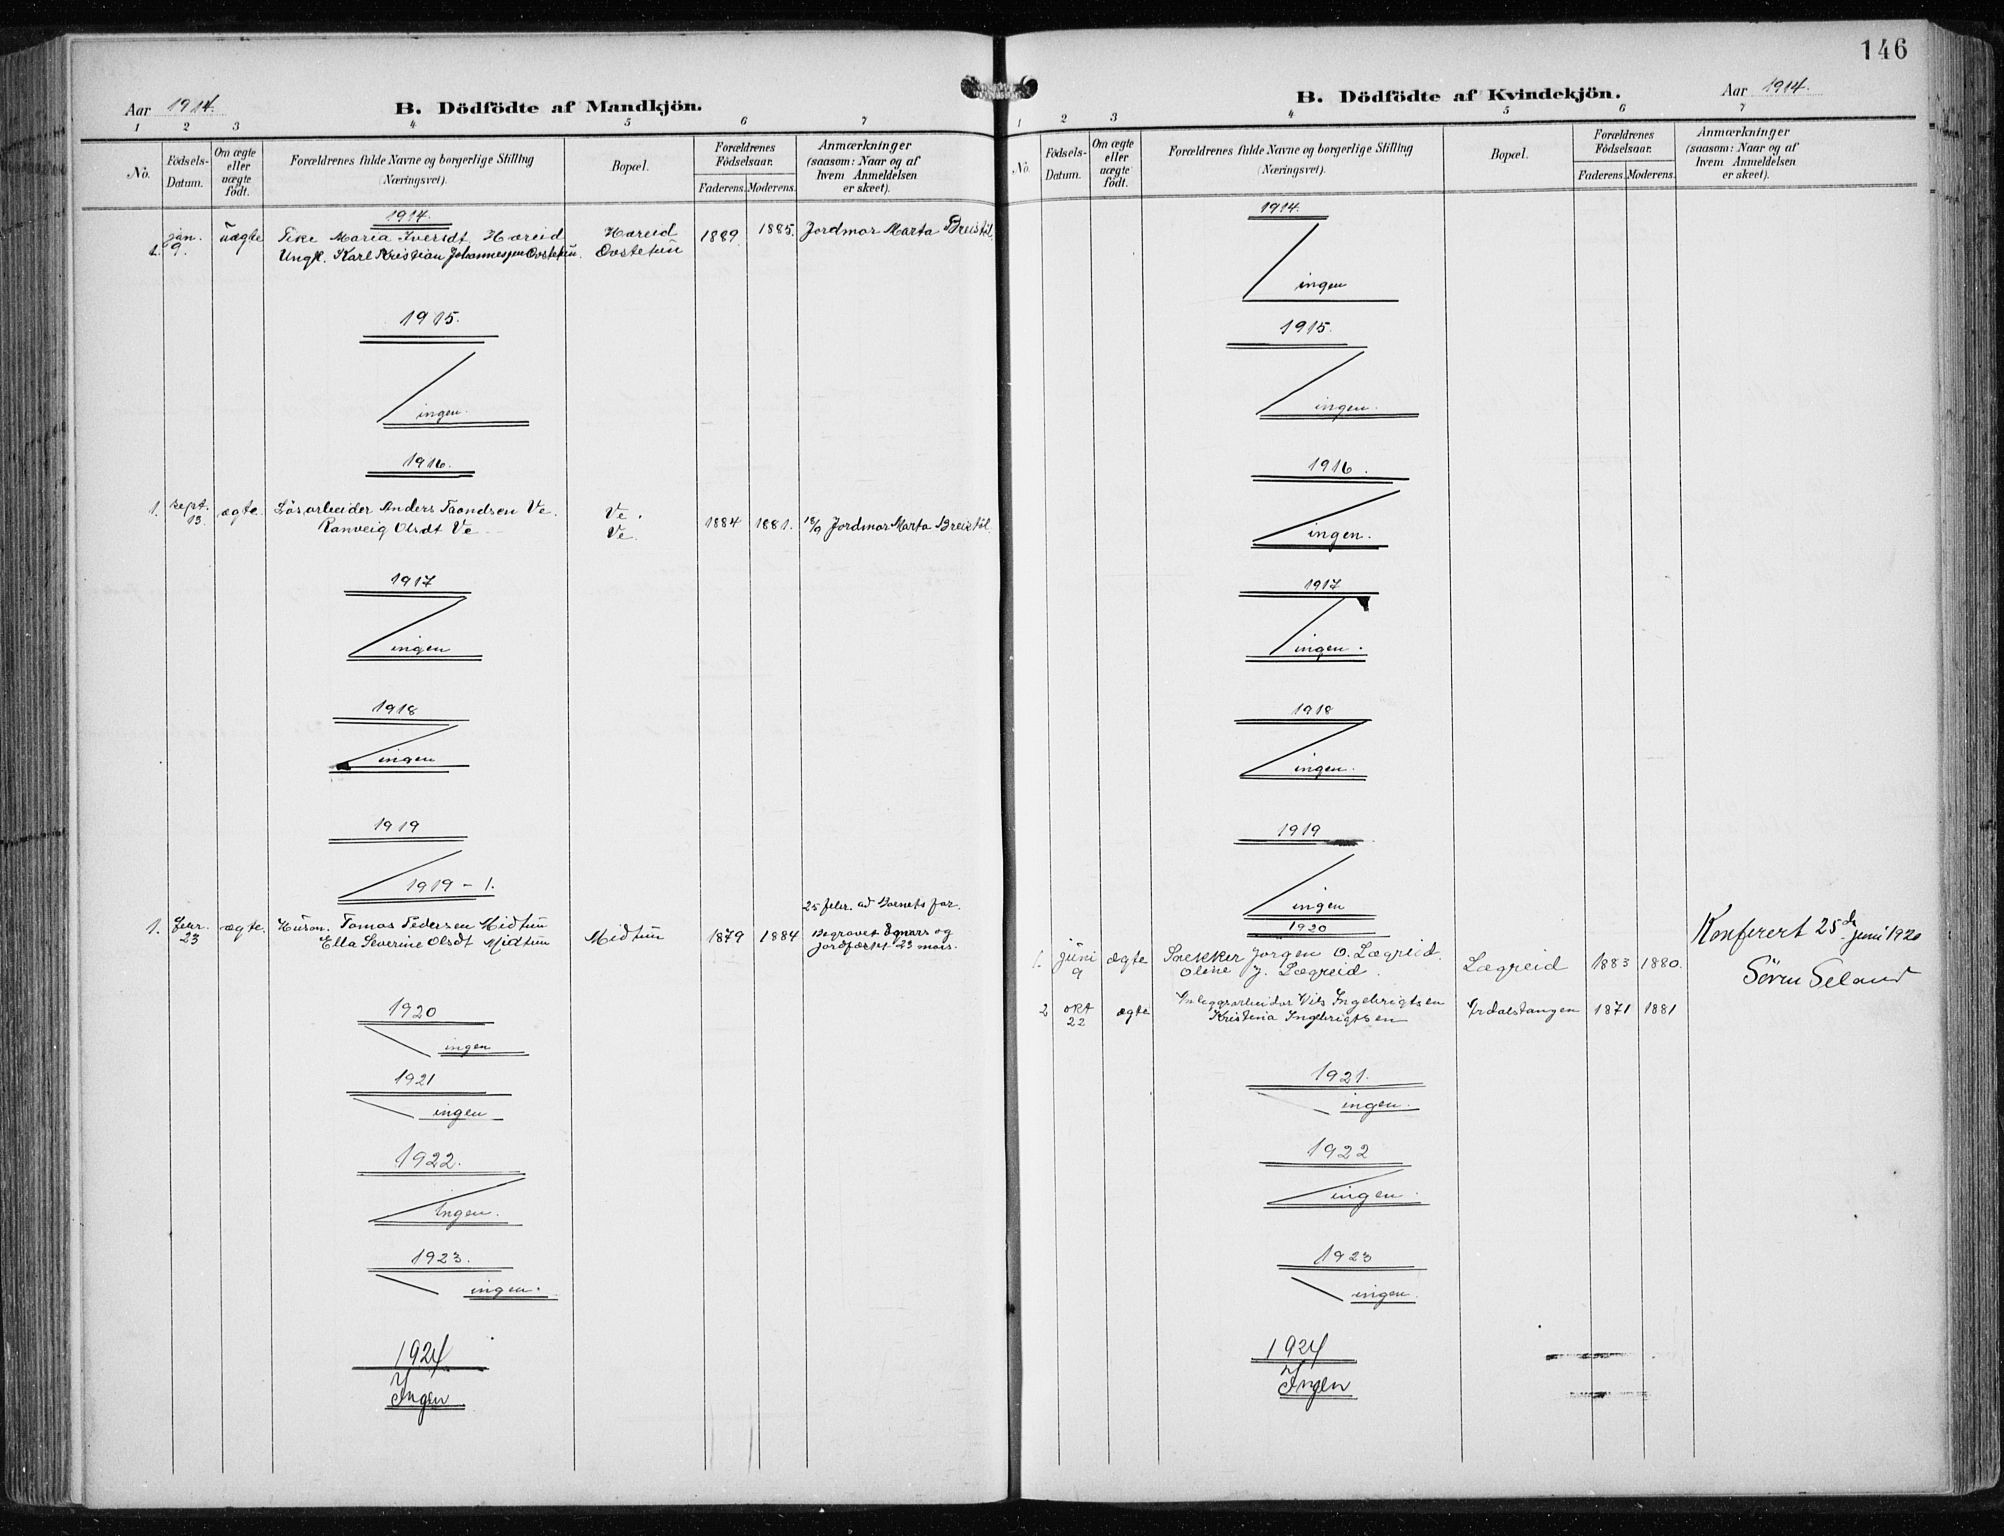 146
Aar 1914.
B. Dödfödte af Mandkjön.
1 2 3 4 5 6 7
No.
Födsels-Datum.
Om ægte eller uægte födt.
Forældrenes fulde Navne og borgerlige Stilling (Næringsvei).
Bopæl.
Forældrenes Födselsaar.
Faderens. Moderens.
Anmærkninger (saasom: Naar og af hvem Anmeldelsen er skeet).
1914.
1. jan. 9. uægte Pike Maria Iversdt. Hæreid Hæreid 1889 1885. Jordmor Marta Breistöl.
Ungk. Karl Kristian Johannessen Ovstetun. Ovstetun
1915.
ingen.
1916.
1. sept. 13. ægte. Lösarbeider Anders Trondsen Ve. Ve. 1884 1881. 18/9 Jordmor Marta Breistöl.
Ranveig Olsdt Ve Ve.
1917
ingen
1918
ingen
1919
1919 - 1.
25 febr. ad Barnets far.
1. Febr. 23 ægte. Husm. Tomas Pedersen Midtun Midtun 1879 1884 Begravet Egnars og
Ella Severine Olsdt Midtun jordfæstet 23 mars.
1920
ingen
1921
ingen
1922.
Ingen.
1923.
ingen.
1924
Ingen
Aar 1914.
B. Dödfödte af Kvindekjön.
1 2 3 4 5 6 7
No.
Födsels-Datum.
Om ægte eller uægte födt.
Forældrenes fulde Navne og borgerlige Stilling (Næringsvei).
Bopæl.
Forældrenes Födselsaar.
Faderens. Moderens.
Anmærkninger (saasom: Naar og af hvem Anmeldelsen er skeet).
1914.
ingen
1915.
ingen.
1916.
ingen.
1917
ingen.
1918
ingen.
1919
ingen
1920
Konferert 25de juni 1920
1. juni 9 ægte Snekker Jorgen O. Lægreid. Lægreid 1883 1880.
Oline J. Lægreid.
Sören Seland
2 okt 22 ægte Anleggsarbeider Nils Ingebrigtsen Årdalstangen 1871 1881
Kristina Ingebrigtsen
1921.
ingen.
1922
ingen.
1923
ingen.
1924
Ingen